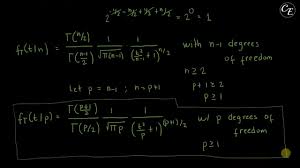 2^{-1/2 - n/2 + 1/2 + n/2} = 2^0 = 1
CE
f_T(t|n) = \frac{Γ(n/2)}{Γ(\frac{n-1}{2})} \frac{1}{\sqrt{π(n-1)}} \frac{1}{(\frac{t^2}{n-1} + 1)^{n/2}} with n-1 degrees
of freedom
n ≥ 2
let p = n-1 ; n = p+1
p+1 ≥ 2
p ≥ 1
f_T(t|p) = \frac{Γ(\frac{p+1}{2})}{Γ(p/2)} \frac{1}{\sqrt{πp}} \frac{1}{(\frac{t^2}{p} + 1)^{(p+1)/2}} w/ p degrees of
freedom
p ≥ 1